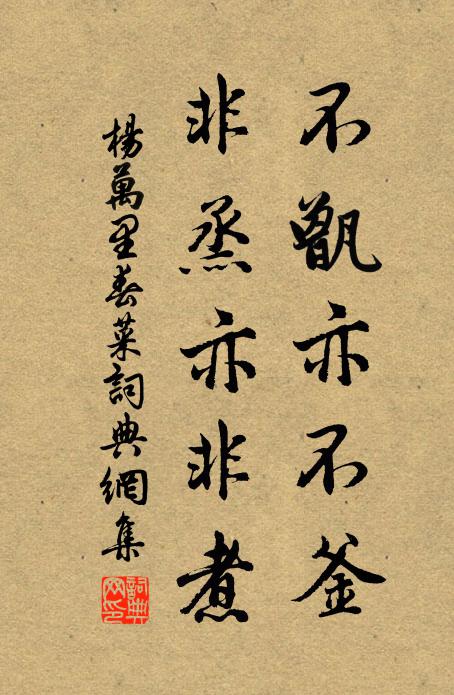 不甑亦不釜
非烝亦非煮
楊萬里春菜詞典網集
詞典網印